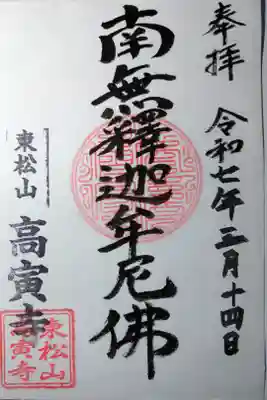 奉拝 令和七年三月十四日
南無釋迦牟尼佛
東松山
高寅寺
東松山
高寅寺